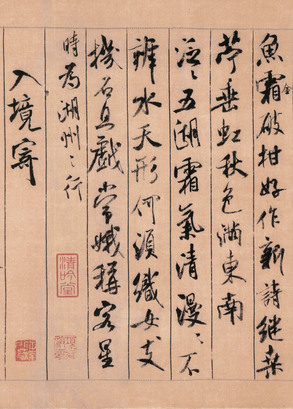 魚霜金破柑好作新詩繼桑
苧垂虹秋色滿東南
泛〻五湖霜氣清漫〻不
辨水天形何須織女支
機石且戲常娥稱客星
時為湖州之行
入境寄
清吟堂